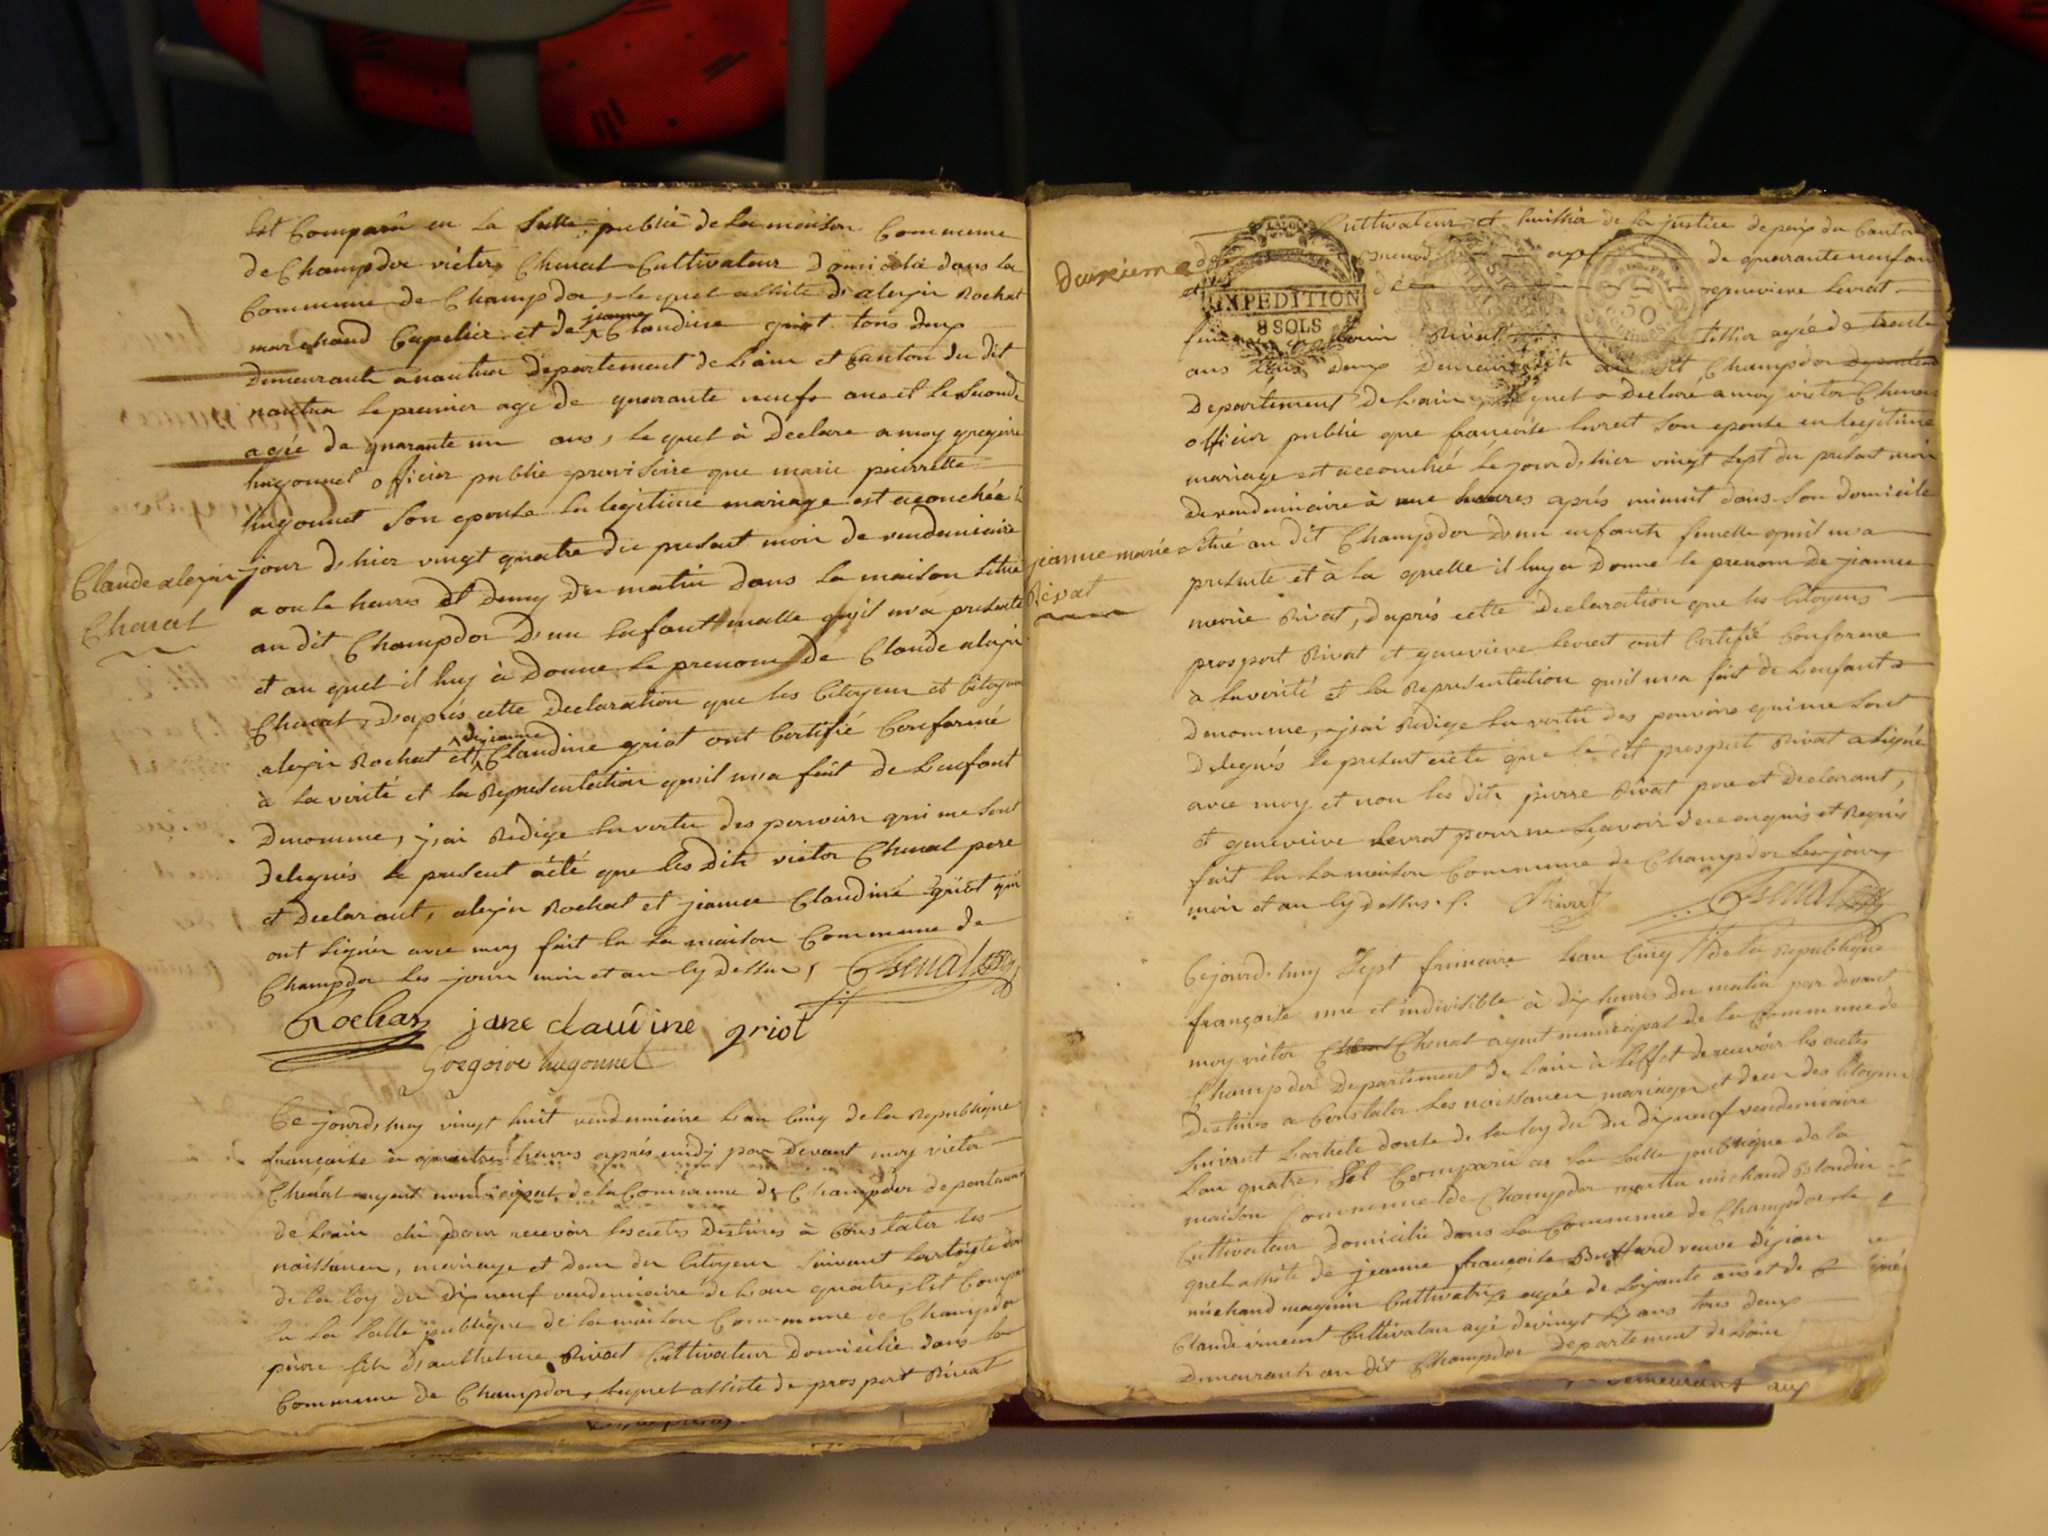 Est Comparu en la Salle public de la maison Commune
de Champdor victor Chenat Cultivateur Domicilié dans la
Commune de Champdor, le quel assiste d'alexis Rochat
marchand Capelier et de jeanne Claudine griot tous deux
Demeurants a nantua Departement de L'ain et Canton du dit
nantua le premier age de quarante neuf ans et le second
agée de quarante un ans, le quel à Declare a moy gregoire
hugonnet officier public provisoire que marie pierrette
hugonnet Son epouse En legitime mariage est acouchée le
jour d'hier vingt quatre du present mois de vendemiaire
Claude alexis
Chanat
a onse heures et demy Du matin dans la maison Situé
au dit Champdor D'un Enfant malle qu'il m'a presente
et au quel il luy à Donne le prenom de Claude alexis
Chenat, D'aprés cette Declaration que les Citoyens et Citoyenne
alexis Rochat et dit jeanne Claudine griot ont Certifié Conforme
à la verité et la Representation qu'il m'a fait de L'enfant
Denomme, j'ai Redige En vertu des pouvoirs qui me sont
delegués le present acte que les Dits victor Chenat pere
et Declarant, alexis Rochat et jeanne Claudine griot qui
ont Signér avec moy fait En La maison Commune de
Champdor les jour mois et an Cy Dessus,
Chenat
Rochat jane claudine griot
Gregoire hugonnet
Ce jourd'huy vingt huit vendemiaire L'an Cinq de la Republique
françaîse à quatres heures aprés midy par Devant moy victor
Chenat agent municipal de la Commune de Champdor departement
de L'ain élu pour recevoir les actes Destinés à Constater les
naissances, mariage et deces des Citoyens Suivant L'article douse
de la loy du dix neuf vendemiaire de L'an quatre, Est Comparu
En La Salle publique de la maison Commune de Champdor
pierre fils d'anthelme Rivat Cultivateur Domicilié dans la
Commune de Champdor, lequel assiste de prosport Rivat
Cultivateur et huissier de la justice de paix du Canton
deuxieme
EXPEDITION
8 SOLS
agé de quarante neuf ans
et de genevieve Levrat
Rivat tissier agée de trente
ans tous deux Demeurants au dit Champdor
Departement De L'ain, le quel a Declaré a moy victor Chenat
officier public que françoise Levrat Son epouse en legitime
mariage est accouchée le jour d'hier vingt sept du present mois
de vendemiaire à une heures aprés minuit dans Son domicile
jeanne marie
Rivat
Situé au dit Champdor D'un enfants fimelle qu'il m'a
presente et à la quelle il luy a Donne le prenom de jeanne
marie Rivat, d'aprés cette Declaration que les Citoyens
prosport Rivat et genevieve Levrat ont Certifié Conforme
a La verité et la Representation qu'il m'a fait de L'enfants
Denomme, j'ai Redige En vertu des pouvoirs qui me Sont
Delegués le present acte que le dit prosport Rivat a Signé
avec moy et non les dits pierre Rivat pere et Declarant,
et genevieve Levrat pour ne Sçavoir de ce enquis et Requis
fait En La maison Commune de Champdor Les jour,
mois et an Cy Dessus. P. Rivat Chenat
Ce jourd'huy Sept frimaire L'an Cinq de la Republique
françaîse une et indivisible à dix heures du matin par devant
moy victor Chenat agent municipal de la Commune de
Champdor Departement de L'ain à L'effet de recevoir les actes
Destinés a Constater Les naissances mariages et deces des Citoyens
Suivant L'article douse de la loy du dix neuf vendemiaire
L'an quatre, Est Comparu en la Salle publique de la
maison Commune de Champdor martin michaud Blondin
Cultivateur Domicilié dans La Commune de Champdor, le
quel assiste de jeanne françoise Buffard veuve de jean
michaud magnin Cultivatrice agée de Soixante ans et de
Claude vincent Cultivateur agé de vingt six ans tous deux
Demeurants au dit Champdor Departement de L'ain
Demeurant aux